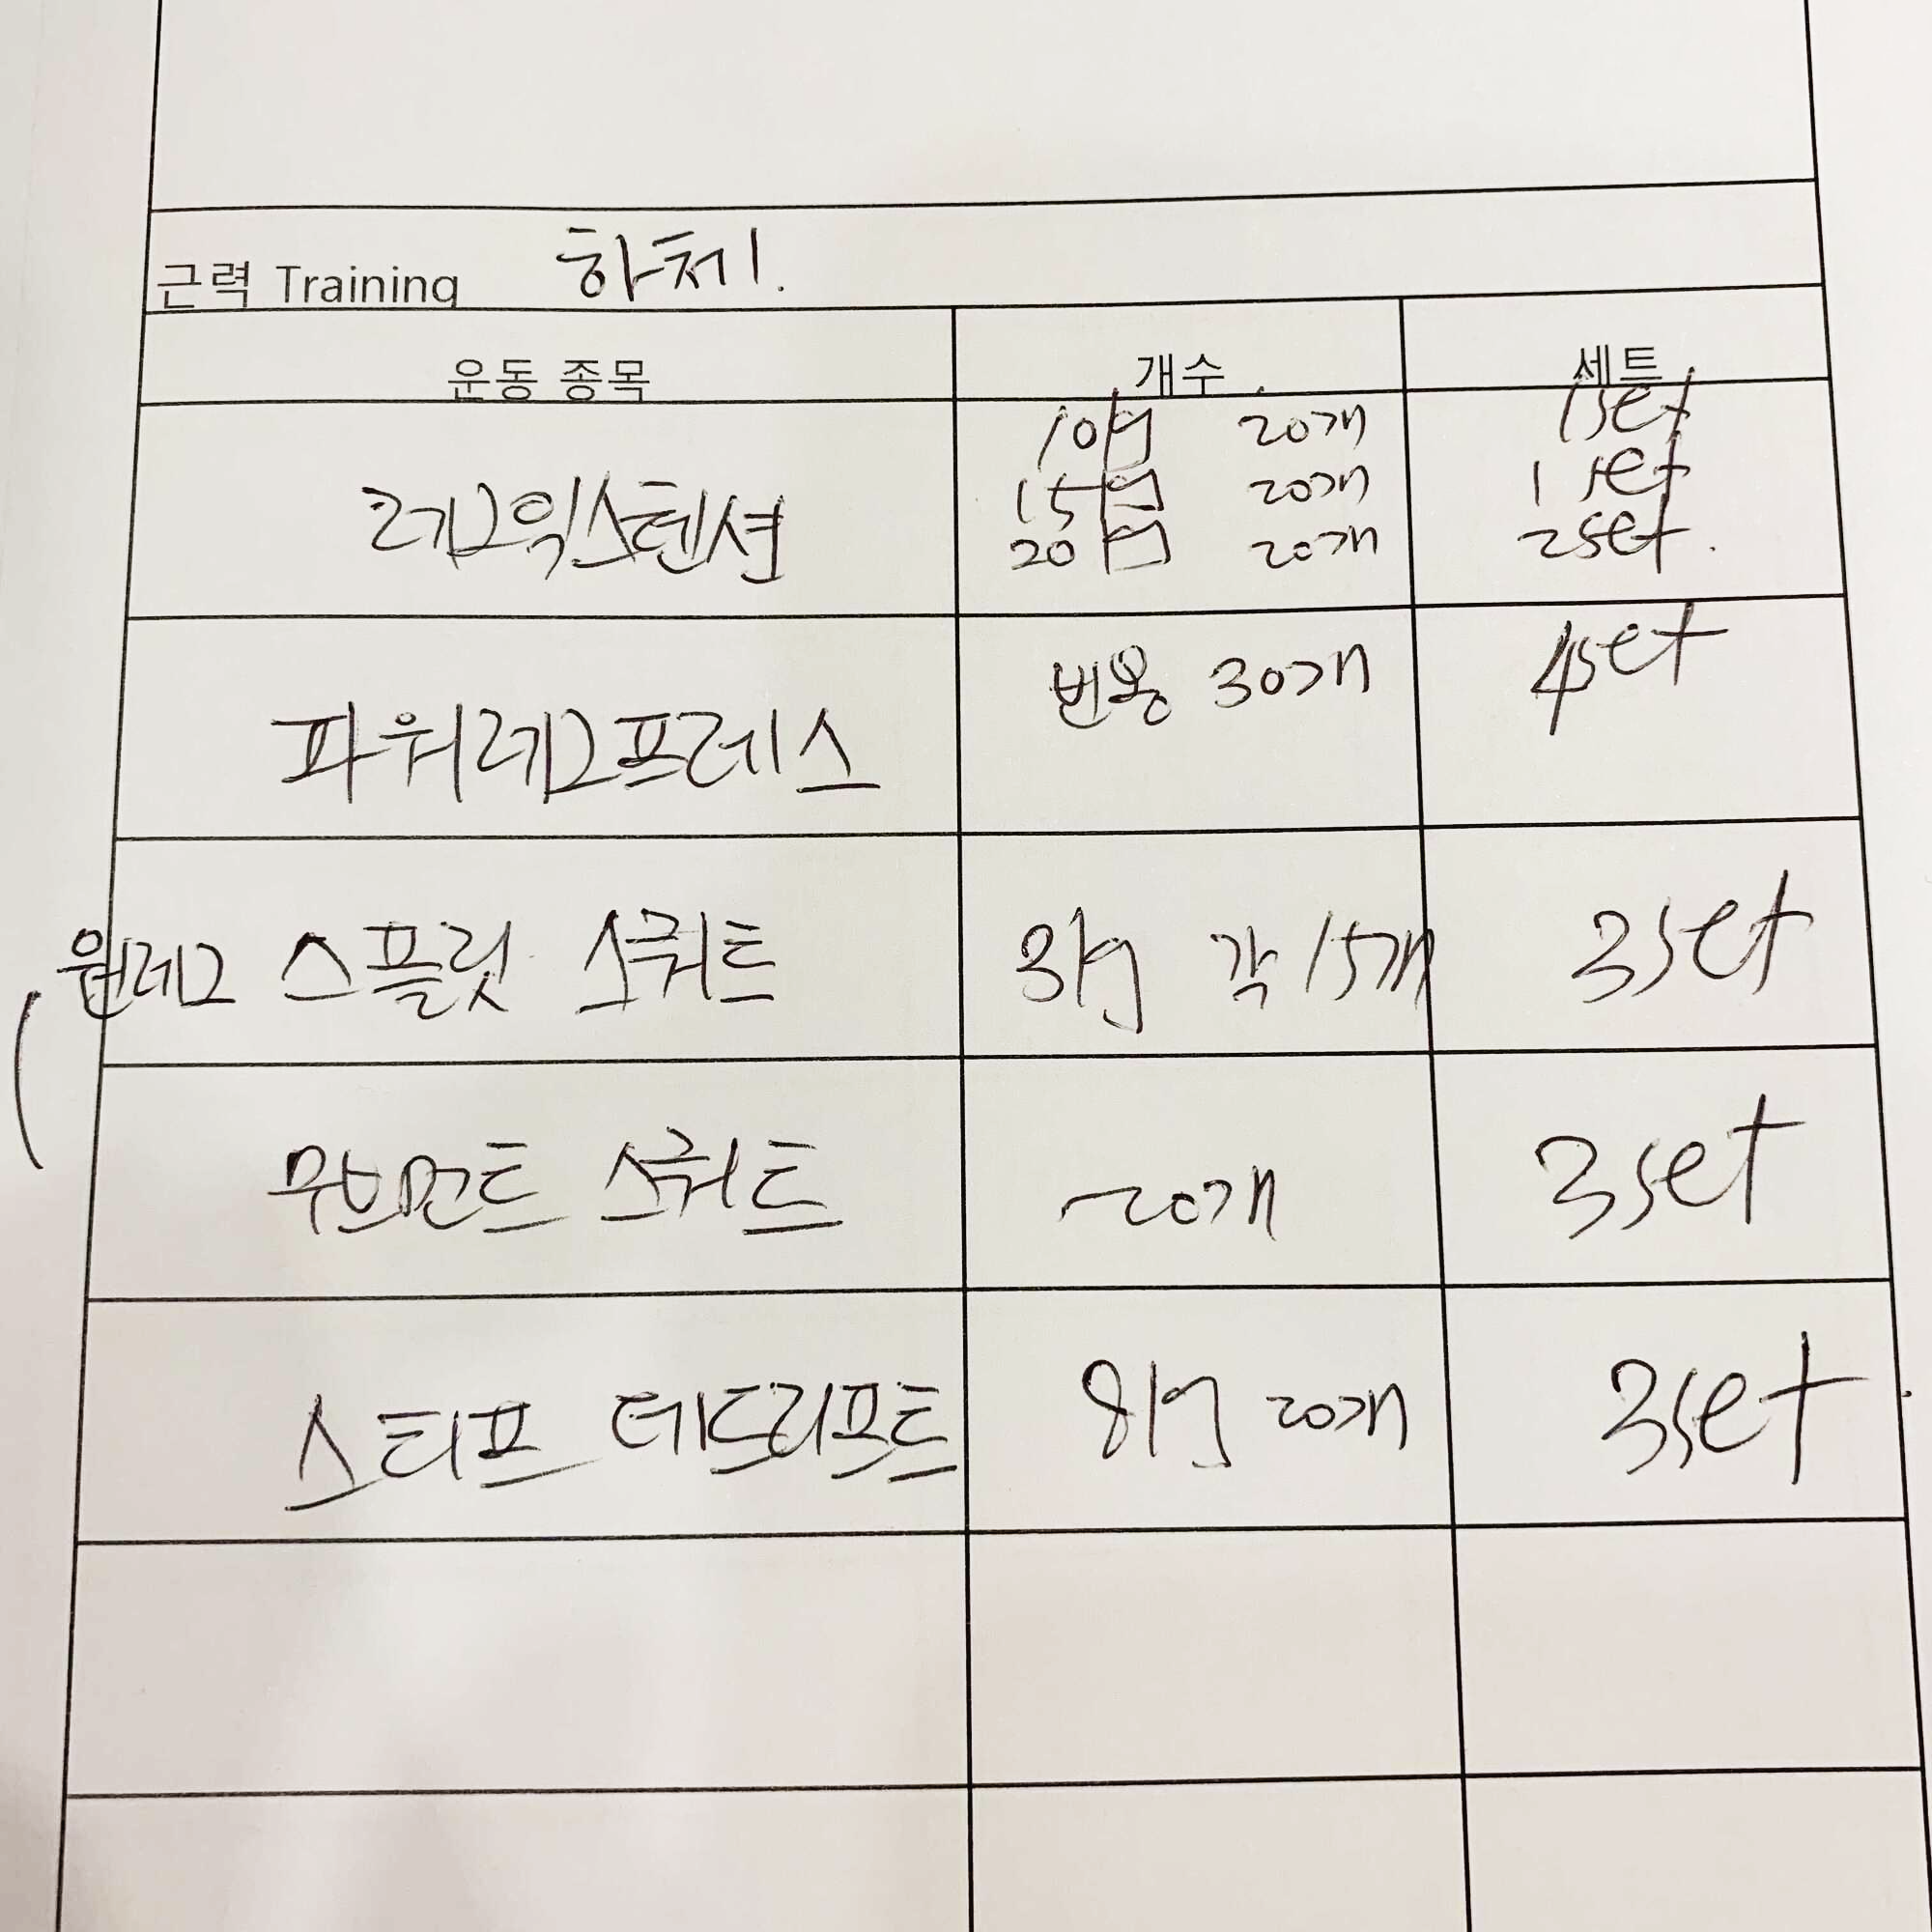 근력 Training 하체.
운동 종목 개수 세트
레그익스텐션
10kg 20개 1set
15kg 20개 1set
20kg 20개 2set.
파워레그프레스 빈봉 30개 4set
원레그 스플릿 스쿼트 3kg 각 15개 3set
무브먼트 스쿼트 20개 3set
스티프 데드리프트 8kg 20개 3set